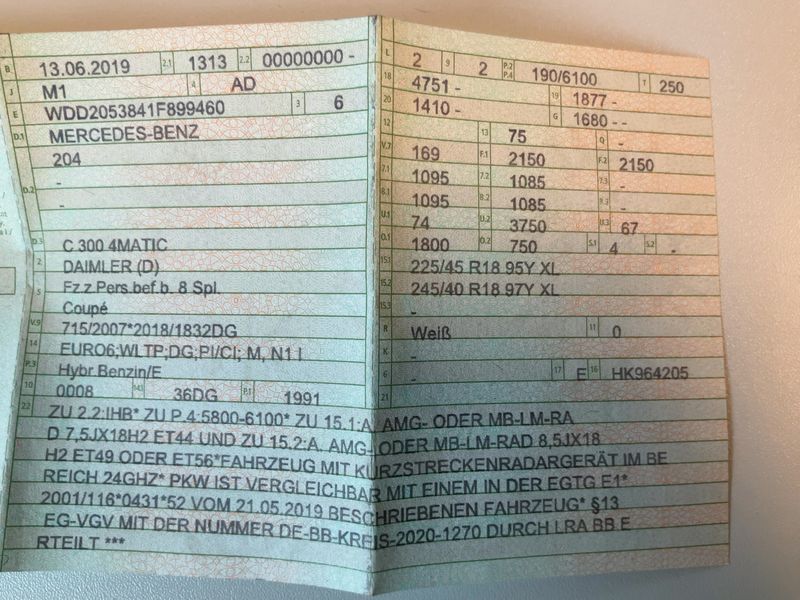 B 13.06.2019 2.1 1313 2.2 00000000 -
J M1 4 AD
E WDD2053841F899460 3 6
D.1 MERCEDES-BENZ
204
D.2 -
-
D.3 C 300 4MATIC
2 DAIMLER (D)
5 Fz.z.Pers.bef.b. 8 Spl.
Coupé
V.9 715/2007*2018/1832DG
14 EURO6;WLTP;DG;PI/CI; M, N1 I
P.3 Hybr.Benzin/E
10 0008 14.1 36DG P.1 1991
L 2 9 2 P.2 P.4 190/6100 T 250
18 4751 - 19 1877 -
20 1410 - G 1680 - -
12 - 13 75 Q -
V.7 169 F.1 2150 F.2 2150
7.1 1095 7.2 1085 7.3 -
8.1 1095 8.2 1085 8.3 -
U.1 74 U.2 3750 U.3 67
O.1 1800 O.2 750 S.1 4 S.2 -
15.1 225/45 R18 95Y XL
15.2 245/40 R18 97Y XL
15.3 -
R Weiß 11 0
K -
6 - 17 E 16 HK964205
21
22 ZU 2.2:IHB* ZU P.4:5800-6100* ZU 15.1:A. AMG- ODER MB-LM-RA
D 7,5JX18H2 ET44 UND ZU 15.2:A. AMG- ODER MB-LM-RAD 8,5JX18
H2 ET49 ODER ET56*FAHRZEUG MIT KURZSTRECKENRADARGERÄT IM BE
REICH 24GHZ* PKW IST VERGLEICHBAR MIT EINEM IN DER EGTG E1*
2001/116*0431*52 VOM 21.05.2019 BESCHRIEBENEN FAHRZEUG* §13
EG-VGV MIT DER NUMMER DE-BB-KREIS-2020-1270 DURCH LRA BB E
RTEILT ***